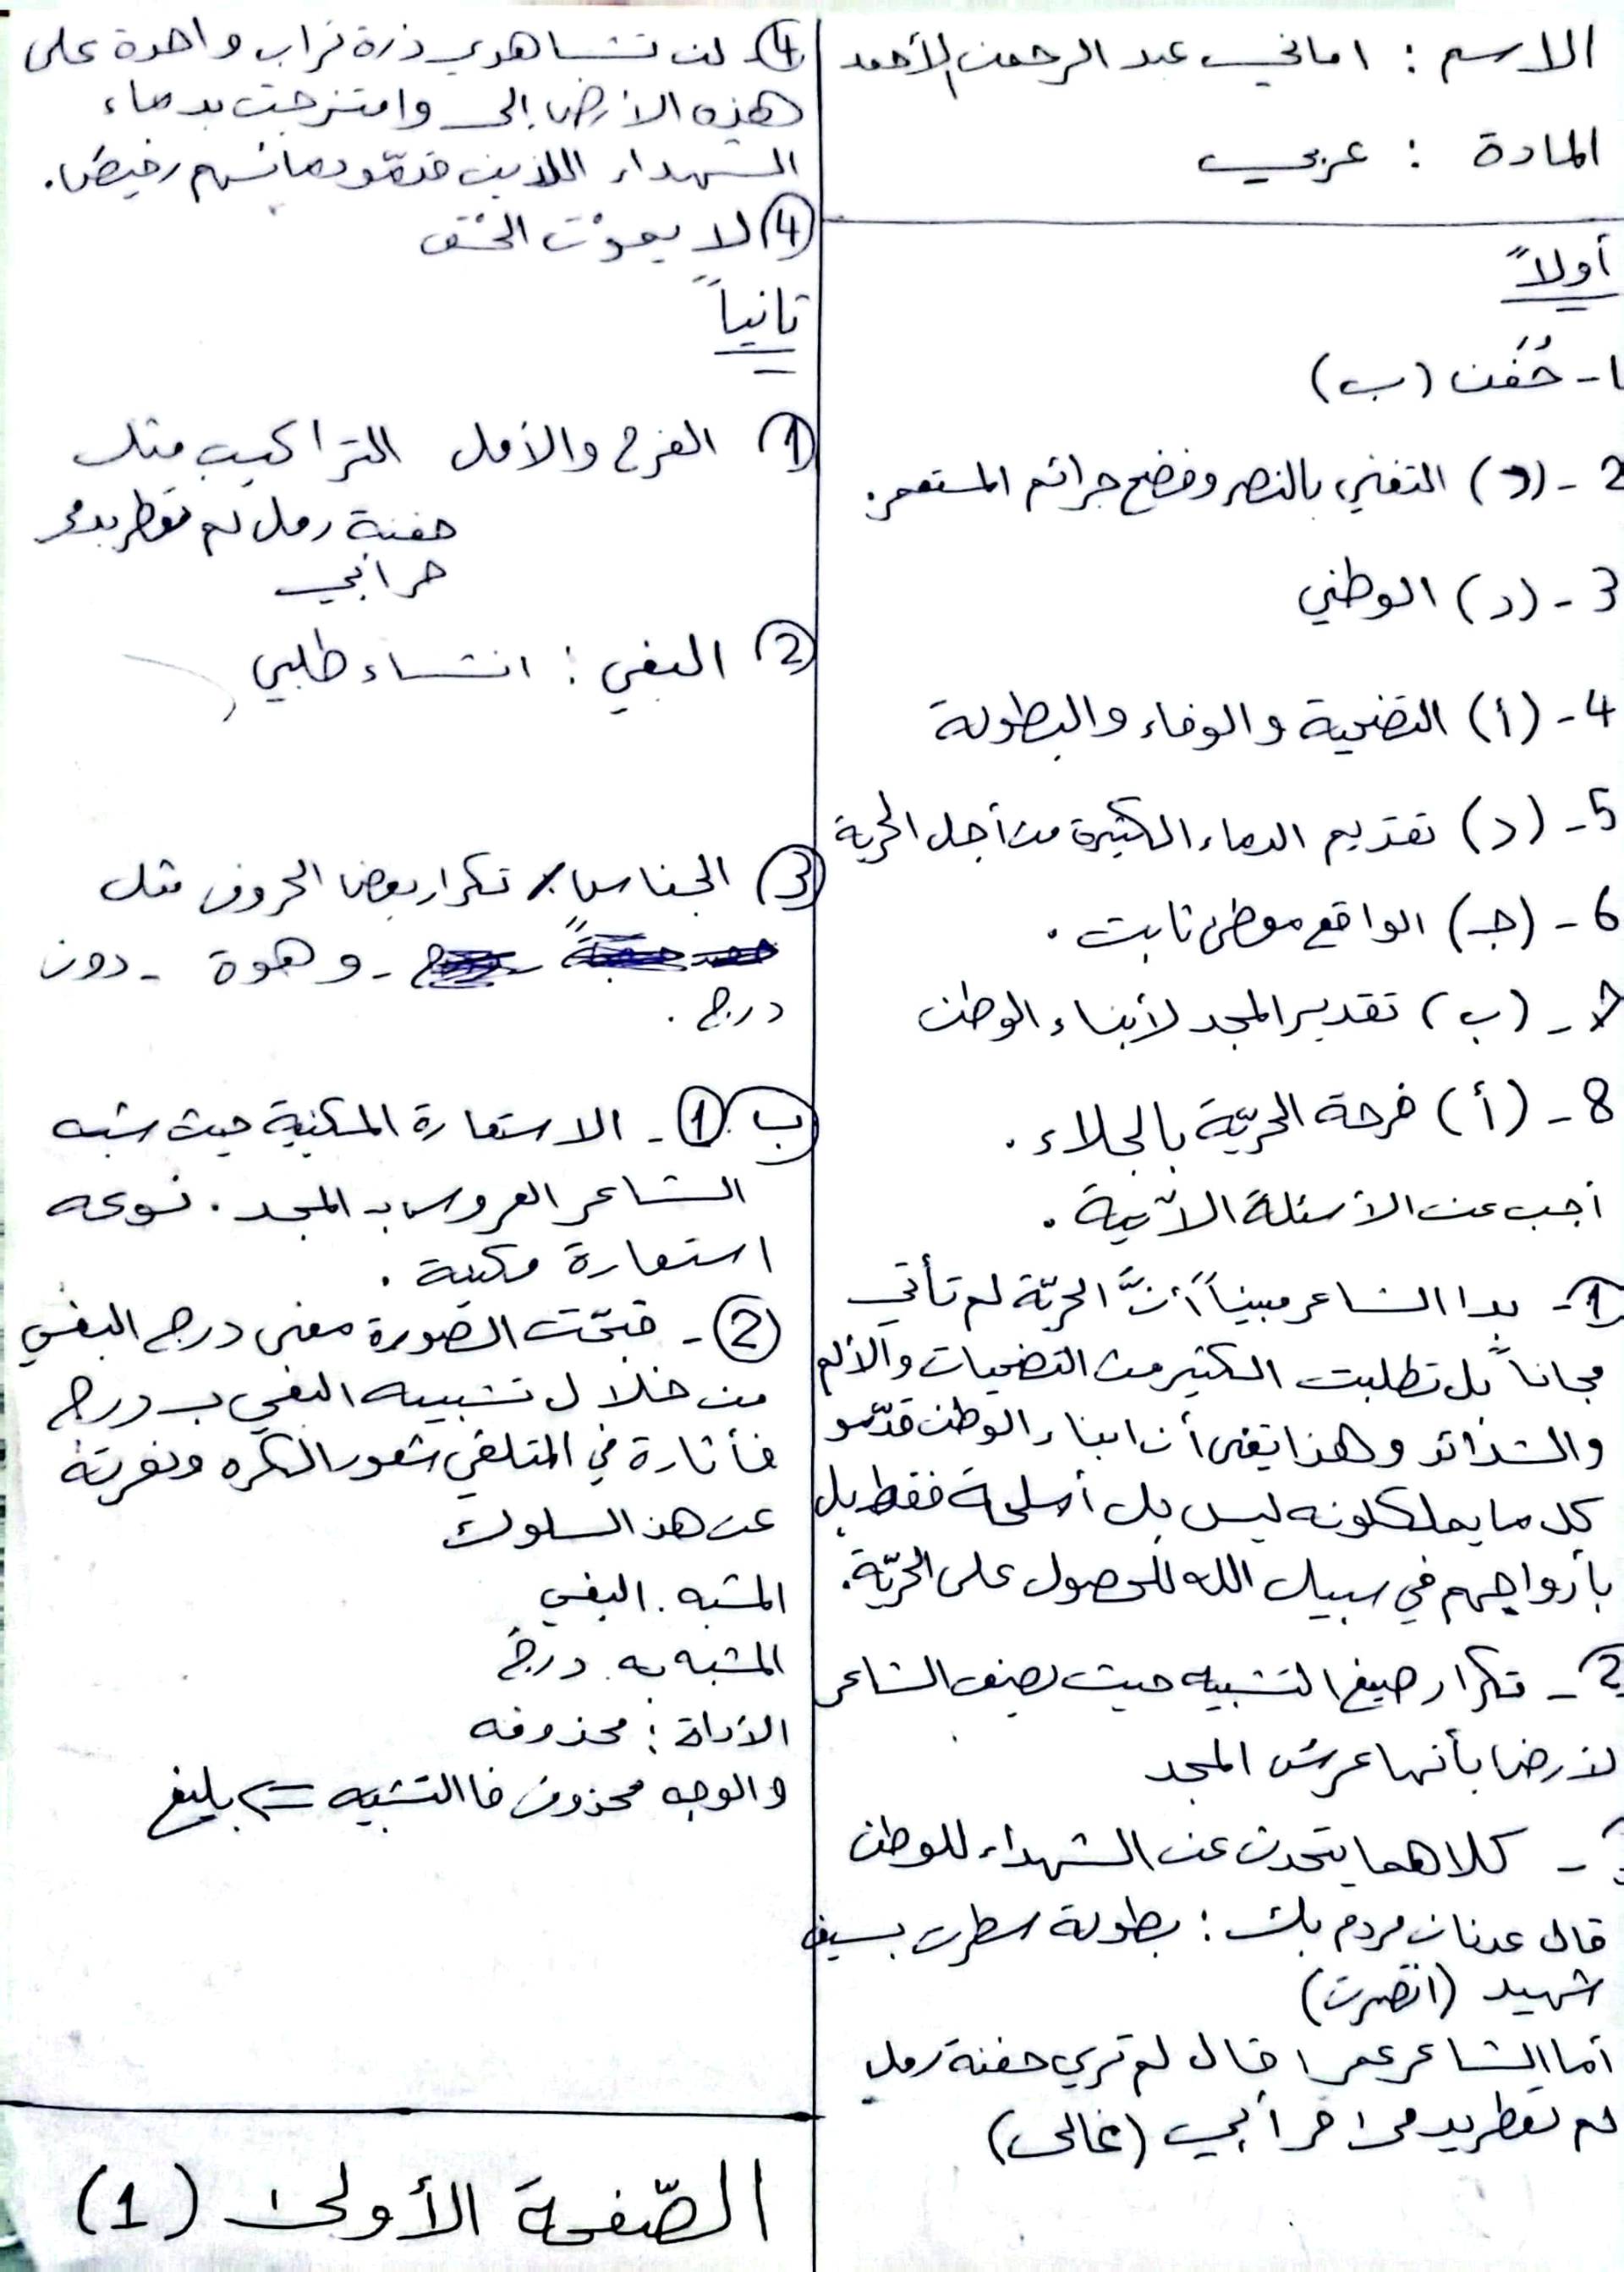 الاسم : اماني عبد الرحمن الأحمد
المادة : عربي
أولاً
1- حُفَن (ب)
2 - (د) التغني بالنصر وفضح جرائم المستعمر.
3 - (د) الوطني
4 - (أ) التضحية والوفاء والبطولة
5 - (د) تقديم الدماء الكثيرة من أجل الحرية
6 - (جـ) الواقع معطى ثابت .
7 - (ب) تقدير المجد لأبناء الوطن
8 - (أ) فرحة الحريّة بالجلاء .
أجب عن الأسئلة الآتية .
1- بدا الشاعر مبيناً أنَّ الحريّة لم تأتي
مجاناً بل تطلبت الكثير من التضحيات والألم
والشدائد وهذا يعني أن ابناء الوطن قدّمو
كل ما يملكونه ليس بل أسلحة فقط بل
بأرواحهم في سبيل الله للحصول على الحريّة.
2 - تكرار صيغ التشبيه حيث يصف الشاعر
لارض بأنها عرش المجد
- كلاهما يتحدث عن الشهداء للوطن
قال عدنان مردم بك : بطولة سطرت بسيف
شهيد (انتصرت)
أما الشاعر عمر ا قال لم تري حفنة رمل
لم تعطر بدمى ا حر أبي (غالى)
4- لن تشاهدي ذرة تراب واحدة على
هذه الأرض إلى وامتزجت بدماء
الشهداء اللذين قدمّو دمائهم رخيصً.
4 لا يموْت الحْق
ثانياً
1 الفرح والأمل التراكيب مثل
حفنة رمل لم تعطر بدم
حر ابي
2 البغي : انشاء طلبي
3 الجناس / تكرار بعض الحروف مثل
- وهوة - دون
درج .
ب 1 - الاستعارة المكنية حيث شبه
الشاعر العروس بـ المجد . نوعه
استعارة مكنية .
2 - قبّحت الصورة معنى درج البغي
من خلال تشبيه البغي بـ درج
فأثارة في المتلقي شعور الكره ونفرته
عن هذ السلوك
المشبه . البغي
المشبه به . درج
الأداة : محذوفه
والوجه محذوف فا التشبيه => بليغ
الصّفحة الأولى (1)